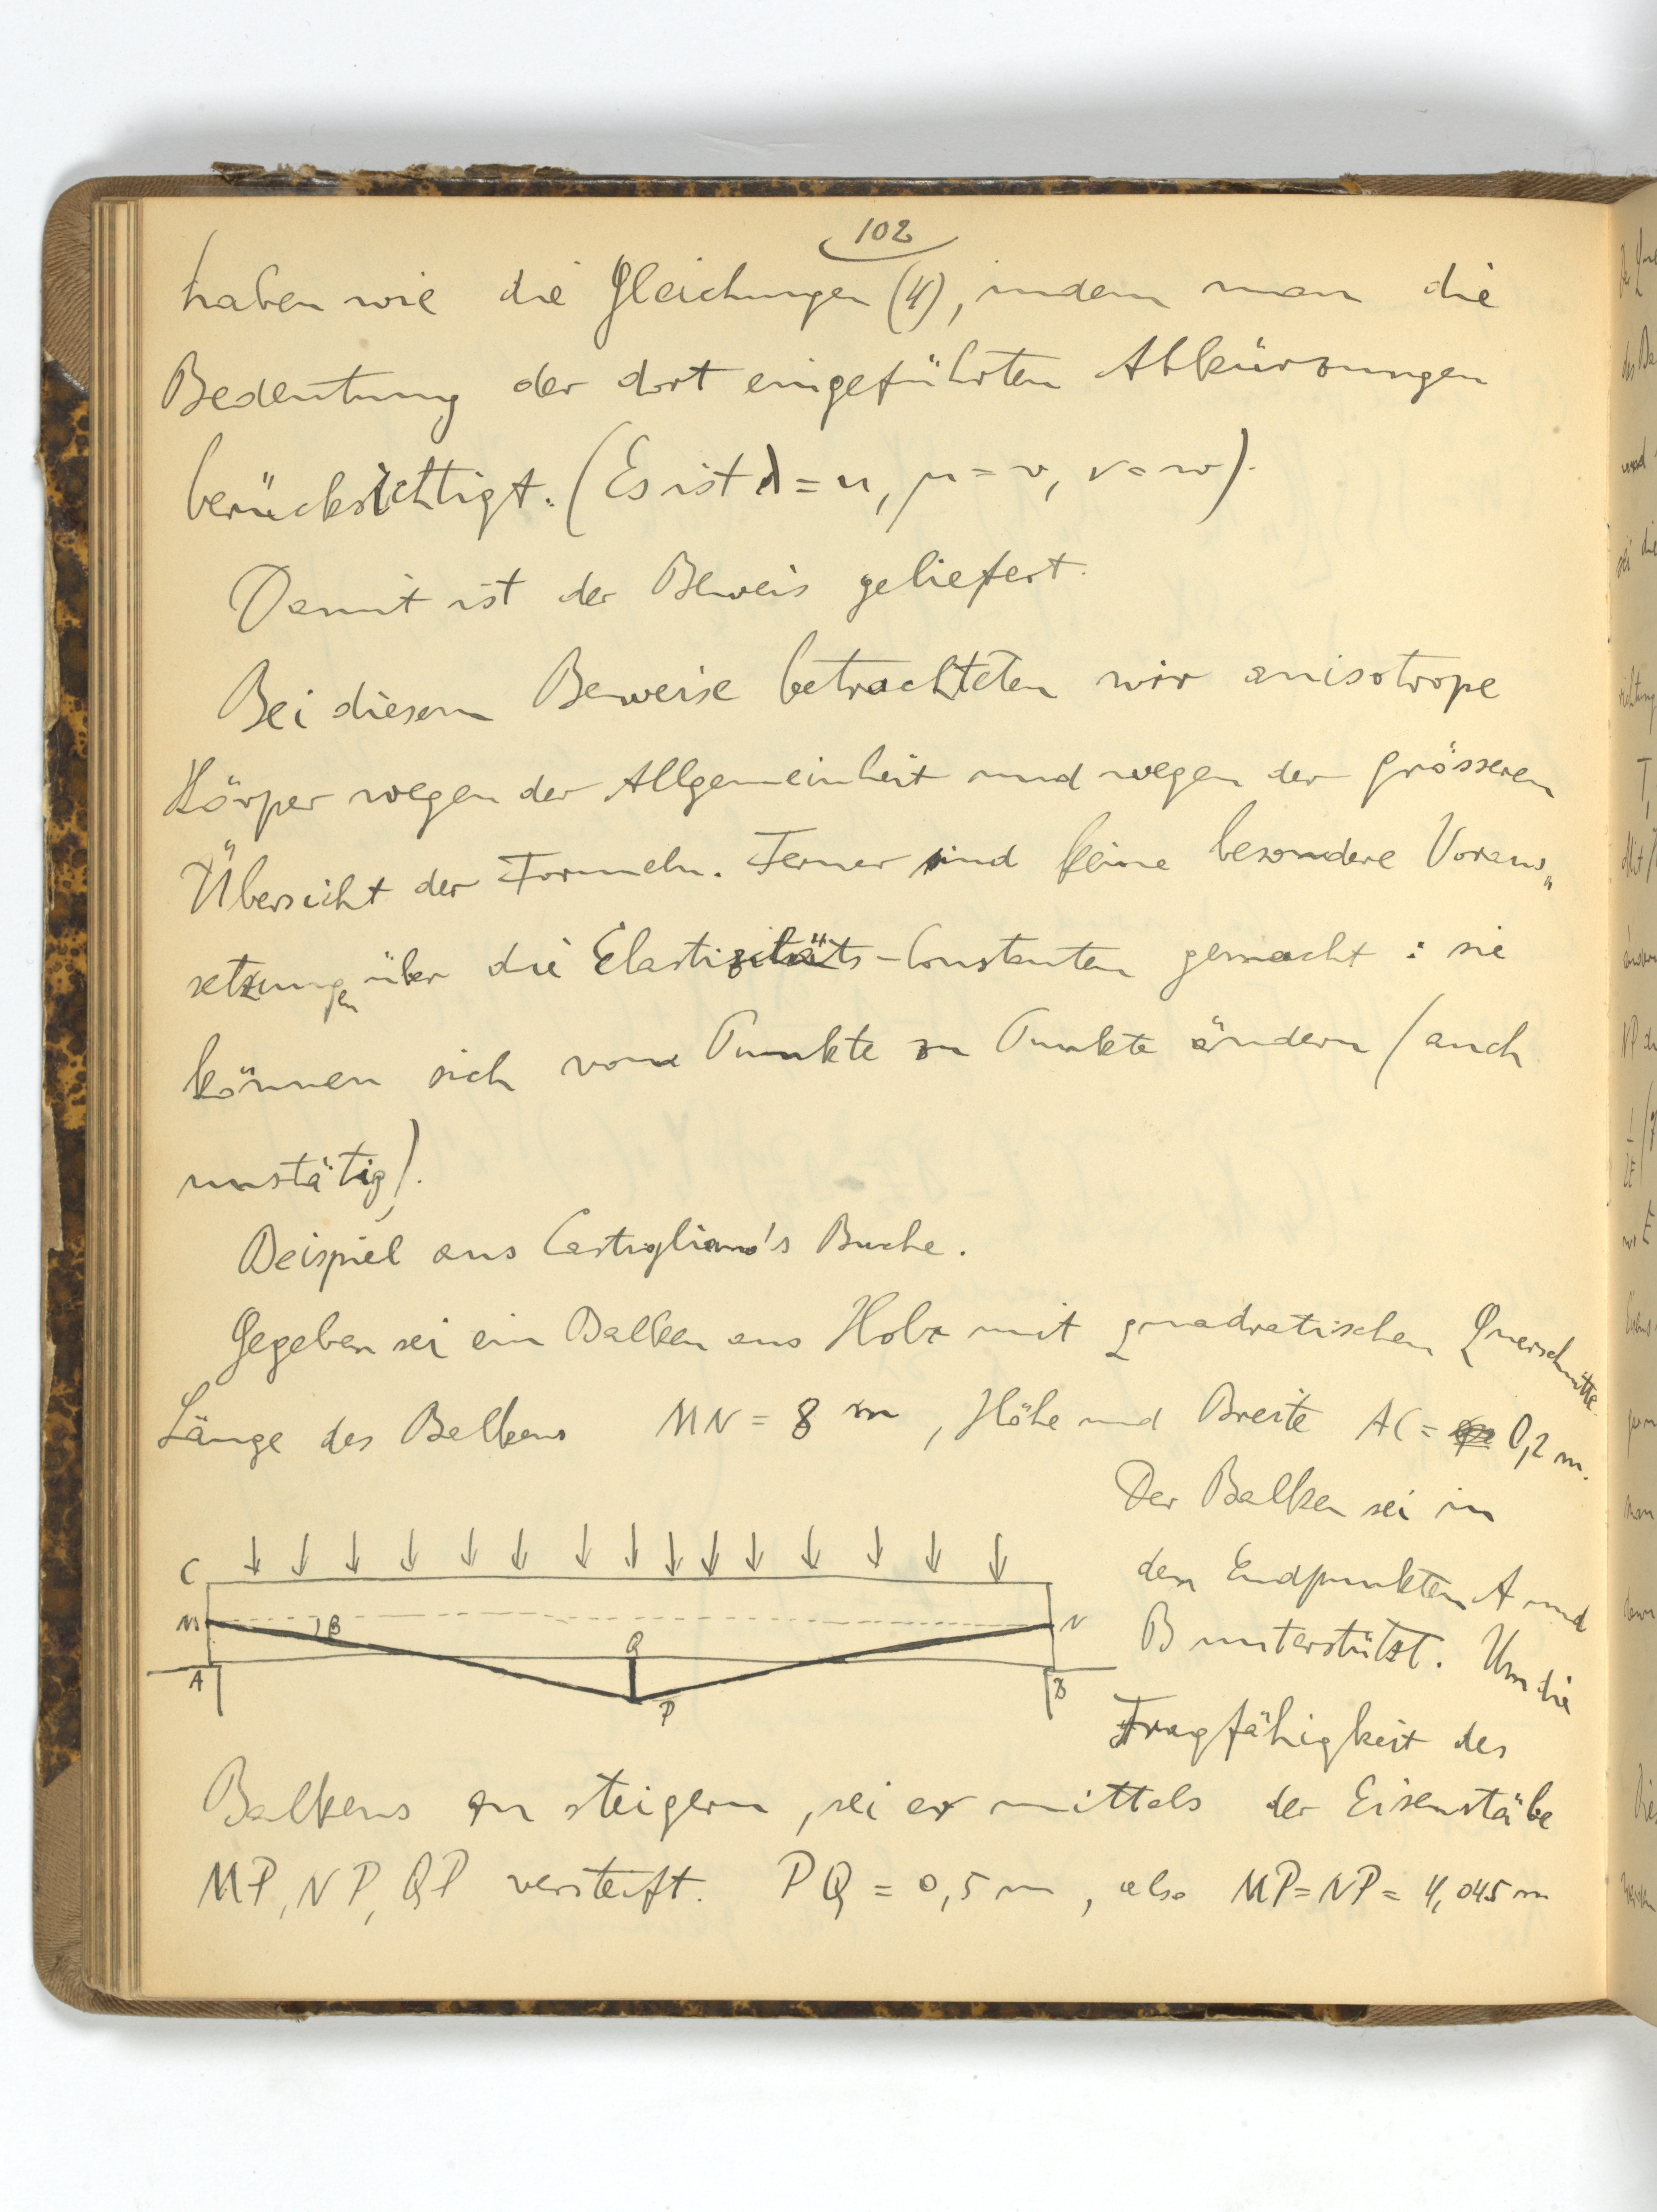 102
haben wie die Gleichungen (4), indem man die
Bedeutung der dort eingeführten Abkürzungen
berücksichtigt. (Es ist λ = u, μ = v, ν = w).
Damit ist der Beweis geliefert.
Bei diesem Beweise betrachteten wir anisotrope
Körper wegen der Allgemeinheit und wegen der grösseren
Übersicht der Formeln. Ferner sind keine besondere Voraus„
setzungen über die Elastizitäts-Constanten gemacht: sie
können sich von Punkte zu Punkte ändern (auch
unstätig).
Beispiel aus Castigliano's Buche.
Gegeben sei ein Balken aus Holz mit quadratischen Querschnitte.
Länge des Balkens MN = 8 m, Höhe und Breite AC = 0,2 m.
Der Balken sei in
den Endpunkten A und
B unterstützt. Um die
Tragfähigkeit des
C
M
β
N
Q
A
B
P
Balkens zu steigern, sei er mittels der Eisenstäbe
MP, NP, QP versteift. PQ = 0,5 m, also MP = NP = 4,045 m